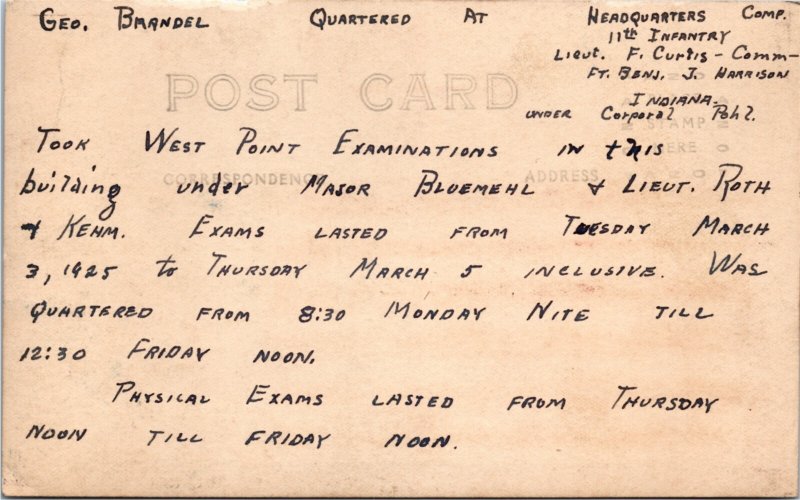 Geo. Brandel Quartered At Headquarters Comp.
11th Infantry
Lieut. F. Curtis - Comm-
Ft. Benj. J. Harrison
Indiana.
under Corporal Pohl.
POST CARD
Took West Point Examinations in this
building under Major Bluemehl & Lieut. Roth
& Kehm. Exams lasted from Tuesday March
3, 1925 to Thursday March 5 inclusive. Was
Quartered from 8:30 Monday Nite till
12:30 Friday noon.
Physical Exams lasted from Thursday
noon till Friday noon.
CORRESPONDENCE
ADDRESS
STAMP